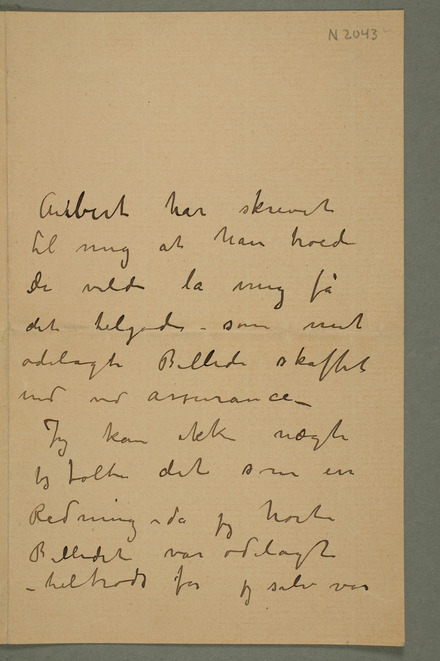 N 2043
Aubert har skrevet
til mig at han troede
De vilde la mig få
det tilgode – som mit
odelagte Billede skaffet
ind ved assurance –
Jeg kan ikke nægte
jeg følte det som en
Redning – da jeg horte
Billedet var odelagt
– tiltrods for jeg selv var